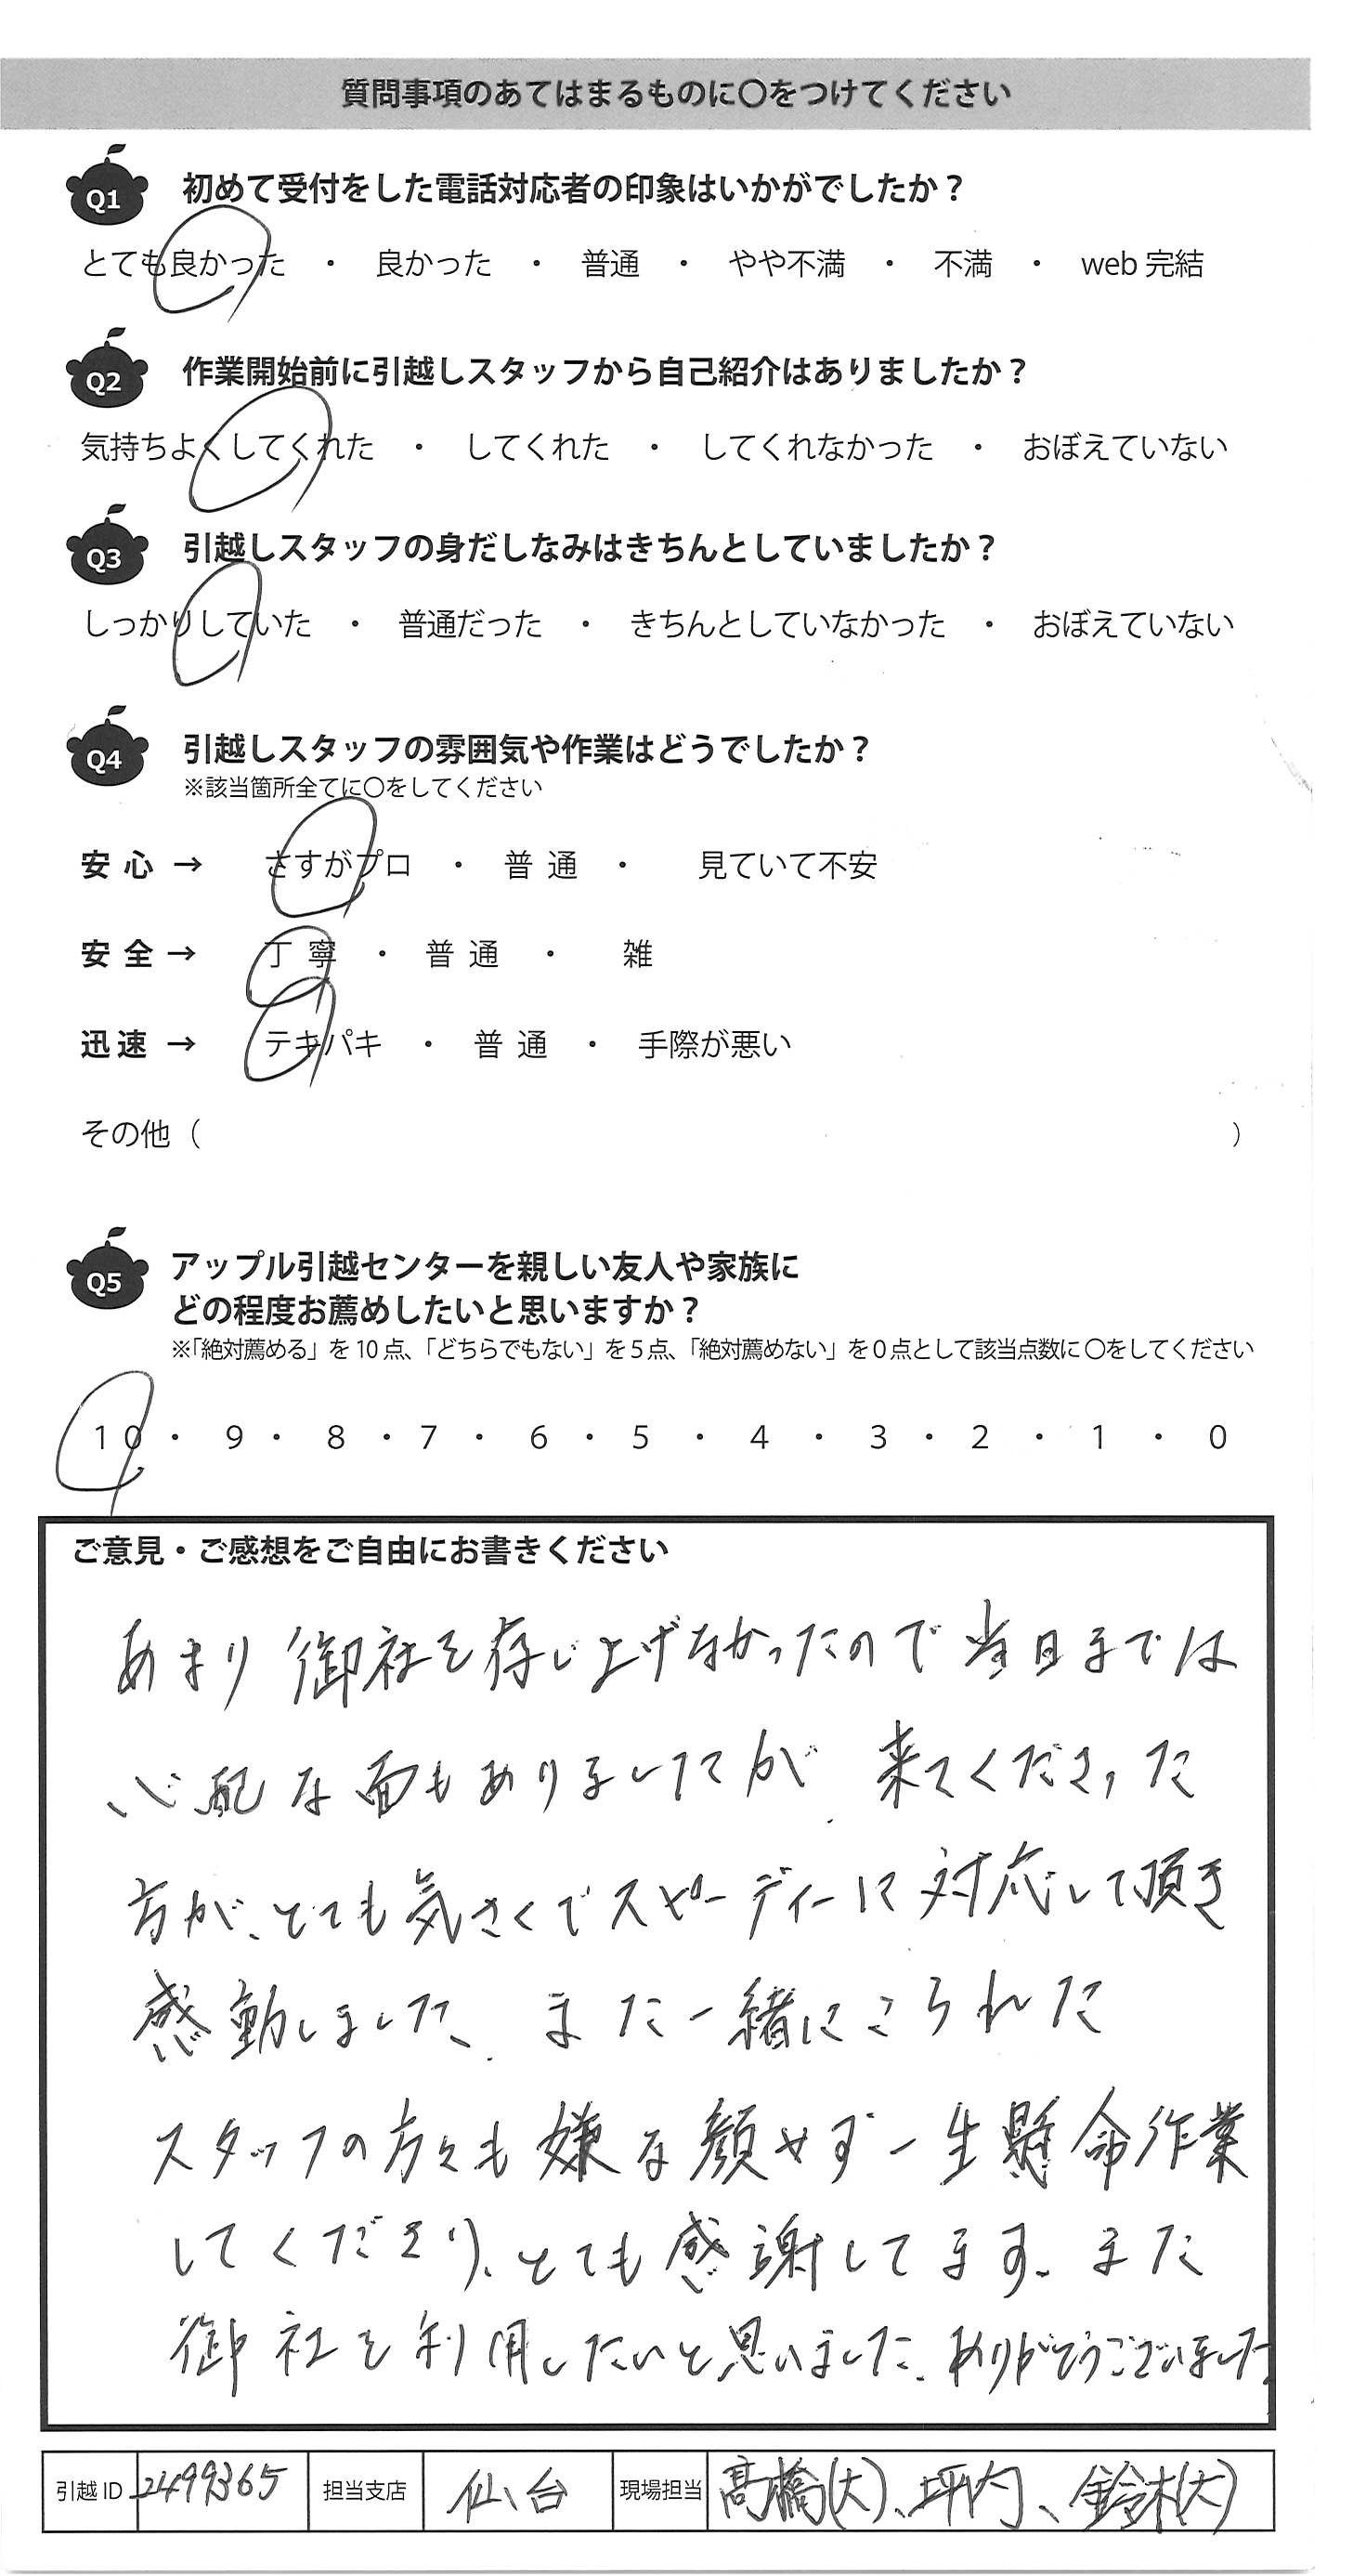 質問事項のあてはまるものに〇をつけてください
Q1 初めて受付をした電話対応者の印象はいかがでしたか？
とても良かった ・ 良かった ・ 普通 ・ やや不満 ・ 不満 ・ web 完結
Q2 作業開始前に引越しスタッフから自己紹介はありましたか？
気持ちよくしてくれた ・ してくれた ・ してくれなかった ・ おぼえていない
Q3 引越しスタッフの身だしなみはきちんとしていましたか？
しっかりしていた ・ 普通だった ・ きちんとしていなかった ・ おぼえていない
Q4 引越しスタッフの雰囲気や作業はどうでしたか？
※該当箇所全てに〇をしてください
安心 → さすがプロ ・ 普通 ・ 見ていて不安
安全 → 丁寧 ・ 普通 ・ 雑
迅速 → テキパキ ・ 普通 ・ 手際が悪い
その他（ ）
Q5 アップル引越センターを親しい友人や家族に
どの程度お薦めしたいと思いますか？
※「絶対薦める」を 10 点、「どちらでもない」を 5 点、「絶対薦めない」を 0 点として該当点数に 〇をしてください
10 ・ 9 ・ 8 ・ 7 ・ 6 ・ 5 ・ 4 ・ 3 ・ 2 ・ 1 ・ 0
ご意見・ご感想をご自由にお書きください
あまり御社を存じ上げなかったので当日までは
心配な面もありましたが、来てくださった
方が、とても気さくでスピーディーに対応して頂き
感動しました、また一緒にこられた
スタッフの方々も嫌な顔せず一生懸命作業
してくださり、とても感謝してます。また
御社を利用したいと思いました、ありがとうございました
引越 ID 2499365 担当支店 仙台 現場担当 髙橋(大)、坪内、鈴木(大)